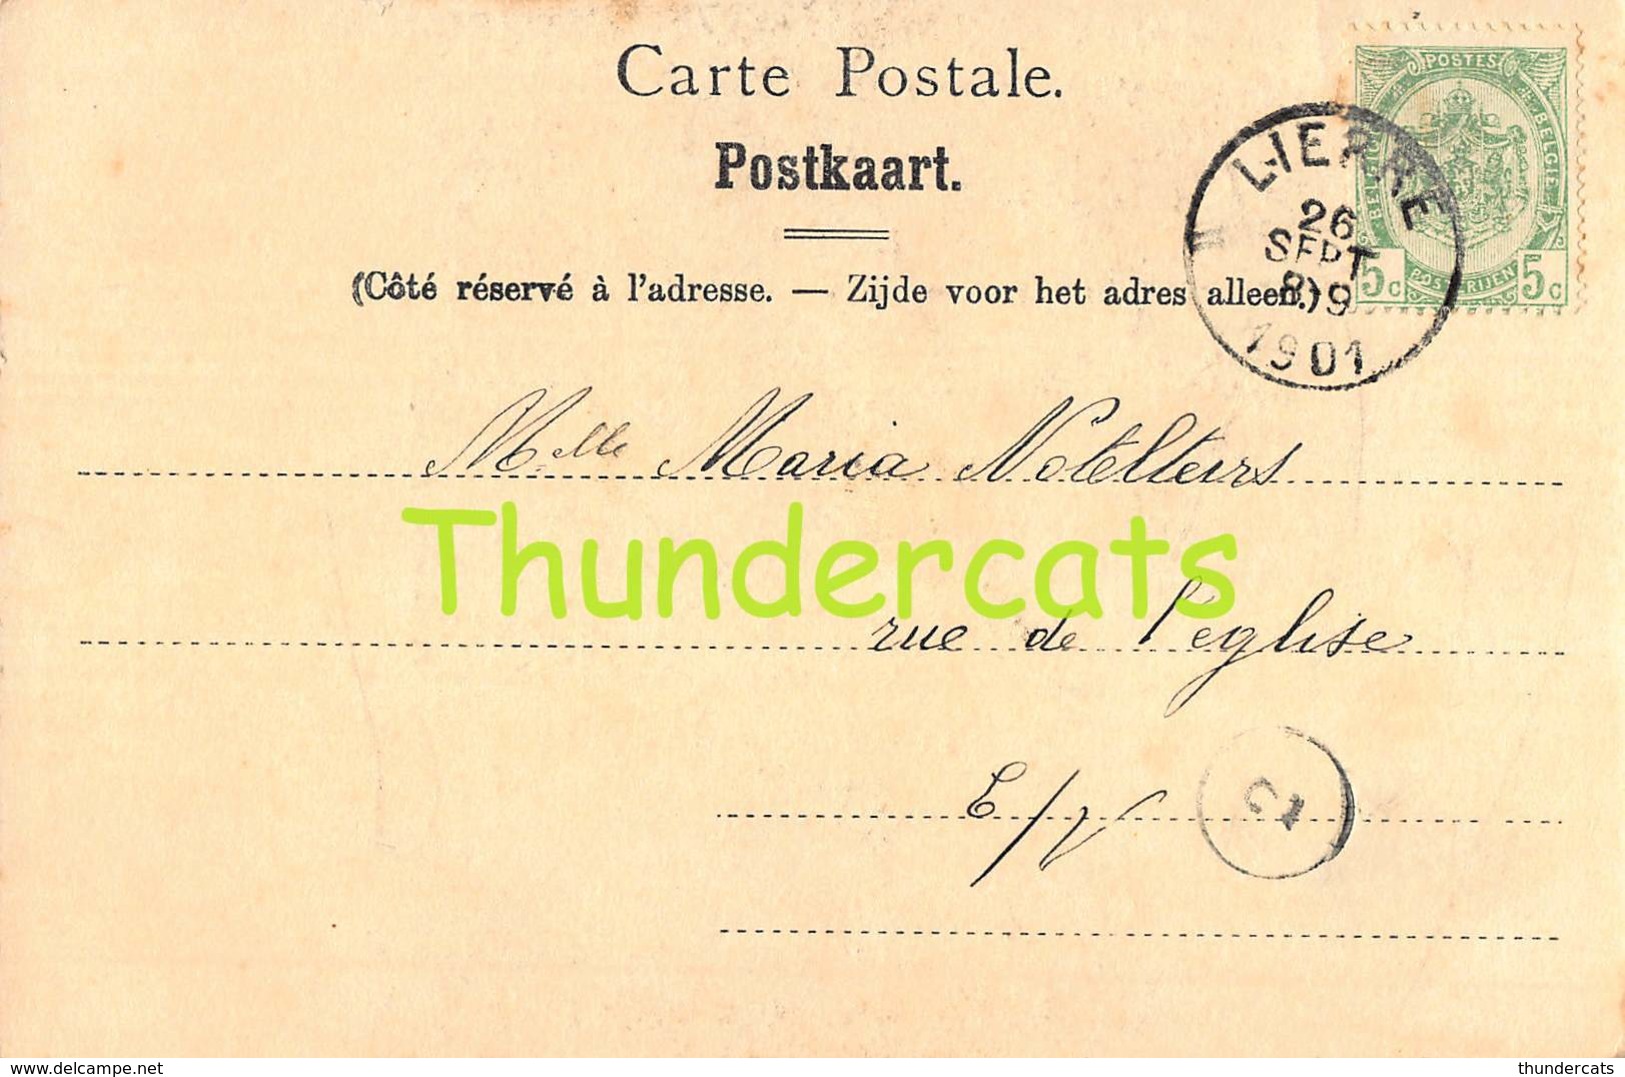 Carte Postale.
Postkaart.
(Côté réservé à l'adresse. — Zijde voor het adres alleen.)
POSTES
BELGIQUE
BELGIË
5c
POSTERIJEN
5c
LIERRE
26
SEPT
8-9
1901
Melle Maria Notelteirs
Thundercats
rue de l'eglise
E/V
delcampe.net
thundercats